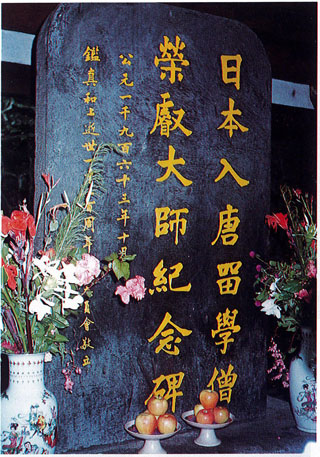 日本入唐留學僧
榮叡大師紀念碑
公元一千九百六十三年十月
鑑真和上逝世一千二百周年委員會敬立